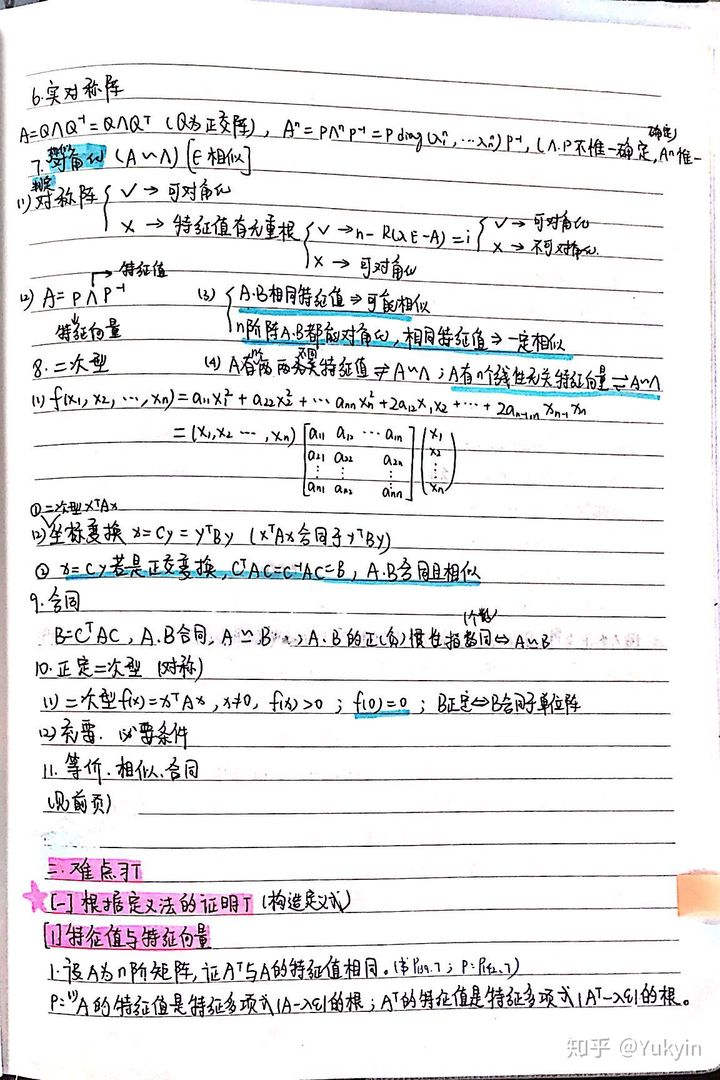 6.实对称阵
A=QΛQ⁻¹=QΛQᵀ (Q为正交阵), Aⁿ=PΛⁿP⁻¹=Pdiag(λ₁ⁿ,…λₙⁿ)P⁻¹, (Λ.P不惟一确定, Aⁿ惟一确定)
7.对角化 (A∽Λ) [E相似]
判定
(1)对称阵 { √→可对角化
×→特征值有无重根 { √→n-R(λE-A)=i { √→可对角化
×→不可对角化.
×→可对角化
(2) A=PΛP⁻¹ 特征值
特征向量
(3) { A.B相同特征值⇒可能相似
n阶阵A.B都能对角化,相同特征值⇒一定相似
8.二次型
(4) A有n个两两不同特征值⇒A∽Λ;A有n个线性无关特征向量⇌A∽Λ
(1) f(x₁,x₂,…,xₙ)=a₁₁x₁²+a₂₂x₂²+…aₙₙxₙ²+2a₁₂x₁x₂+…+2aₙ₋₁,ₙxₙ₋₁xₙ
=(x₁,x₂…,xₙ) [a₁₁ a₁₂ …a₁ₙ (x₁
a₂₁ a₂₂ a₂ₙ x₂
⋮ ⋮ ⋮ ⋮
aₙ₁ aₙ₂ aₙₙ] xₙ)
①二次型xᵀAx
(2)坐标变换 x=Cy=yᵀBy (xᵀAx合同于yᵀBy)
② x=Cy若是正交变换, CᵀAC=C⁻¹AC=B, A.B合同且相似
9.合同
B=CᵀAC, A.B合同, A≃B; A.B的正(负)惯性指数同(个数)⇔A≃B
10.正定二次型 (对称)
(1)二次型f(x)=xᵀAx, x≠0, f(x)>0; f(0)=0; B正定⇔B合同于单位阵
(2)充要.必要条件
11.等价.相似.合同
(见前页)
三.难点习T
[一]根据定义法的证明T (构造定义式)
[1]特征值与特征向量
1.设A为n阶矩阵,证Aᵀ与A的特征值相同。
P:⁽¹⁾A的特征值是特征多项式|A-λE|的根;Aᵀ的特征值是特征多项式|Aᵀ-λE|的根。
知乎 @Yukyin